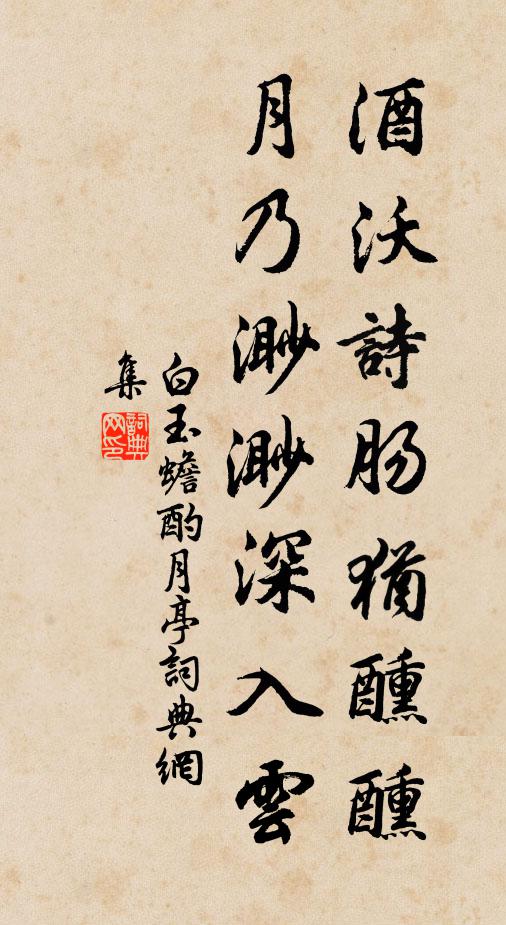 酒沃詩腸猶醺醺
月乃渺渺深入雲
白玉蟾酌月亭詞典網
集
詞典網印